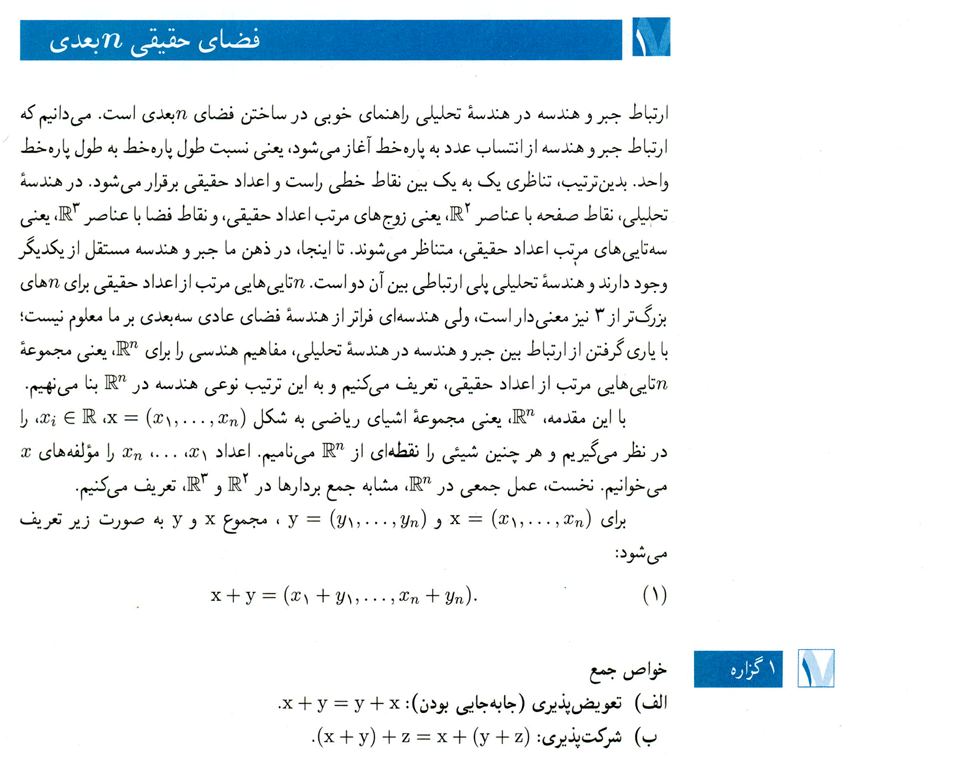 ۱ فضای حقیقی n بعدی
ارتباط جبر و هندسه در هندسهٔ تحلیلی راهنمای خوبی در ساختن فضای nبعدی است. می‌دانیم که
ارتباط جبر و هندسه از انتساب عدد به پاره‌خط آغاز می‌شود، یعنی نسبت طول پاره‌خط به طول پاره‌خط
واحد. بدین‌ترتیب، تناظری یک به یک بین نقاط خطی راست و اعداد حقیقی برقرار می‌شود. در هندسهٔ
تحلیلی، نقاط صفحه با عناصر ℝ^۲، یعنی زوج‌های مرتب اعداد حقیقی، و نقاط فضا با عناصر ℝ^۳، یعنی
سه‌تایی‌های مرتب اعداد حقیقی، متناظر می‌شوند. تا اینجا، در ذهن ما جبر و هندسه مستقل از یکدیگر
وجود دارند و هندسهٔ تحلیلی پلی ارتباطی بین آن دو است. nتایی‌هایی مرتب از اعداد حقیقی برای nهای
بزرگ‌تر از ۳ نیز معنی‌دار است، ولی هندسه‌ای فراتر از هندسهٔ فضای عادی سه‌بعدی بر ما معلوم نیست؛
با یاری گرفتن از ارتباط بین جبر و هندسه در هندسهٔ تحلیلی، مفاهیم هندسی را برای ℝ^n، یعنی مجموعهٔ
nتایی‌هایی مرتب از اعداد حقیقی، تعریف می‌کنیم و به این ترتیب نوعی هندسه در ℝ^n بنا می‌نهیم.
با این مقدمه، ℝ^n، یعنی مجموعهٔ اشیای ریاضی به شکل x = (x_۱, ..., x_n)، x_i ∈ ℝ، را
در نظر می‌گیریم و هر چنین شیئی را نقطه‌ای از ℝ^n می‌نامیم. اعداد x_۱، ...، x_n را مؤلفه‌های x
می‌خوانیم. نخست، عمل جمعی در ℝ^n، مشابه جمع بردارها در ℝ^۲ و ℝ^۳، تعریف می‌کنیم.
برای x = (x_۱, ..., x_n) و y = (y_۱, ..., y_n) ، مجموع x و y به صورت زیر تعریف
می‌شود:
(۱) x + y = (x_۱ + y_۱, ..., x_n + y_n).
۱ گزاره خواص جمع
الف) تعویض‌پذیری (جابه‌جایی بودن): x + y = y + x.
ب) شرکت‌پذیری: (x + y) + z = x + (y + z).